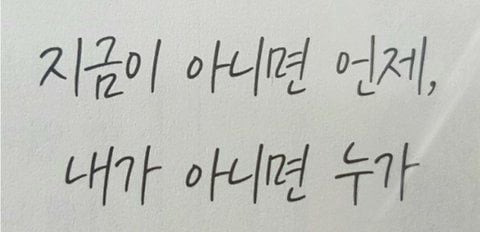 지금이 아니면 언제,
내가 아니면 누가